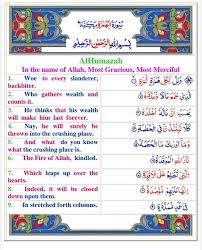 سُورَةُ الْهُمَزَةِ مَكِّيَّة
بِسْمِ اللَّهِ الرَّحْمَٰنِ الرَّحِيمِ
AlHumazah
In the name of Allah, Most Gracious, Most Merciful
1. Woe to every slanderer, backbiter.
وَيْلٌ لِّكُلِّ هُمَزَةٍ لُّمَزَةٍ
2. Who gathers wealth and counts it.
الَّذِي جَمَعَ مَالًا وَعَدَّدَهُ
3. He thinks that his wealth will make him last forever.
يَحْسَبُ أَنَّ مَالَهُ أَخْلَدَهُ
4. Nay, he will surely be thrown into the crushing place.
كَلَّا لَيُنبَذَنَّ فِي الْحُطَمَةِ
5. And what do you know what the crushing place is.
وَمَا أَدْرَاكَ مَا الْحُطَمَةُ
6. The Fire of Allah, kindled.
نَارُ اللَّهِ الْمُوقَدَةُ
7. Which leaps up over the hearts.
الَّتِي تَطَّلِعُ عَلَى الْأَفْئِدَةِ
8. Indeed, it will be closed down upon them.
إِنَّهَا عَلَيْهِم مُّؤْصَدَةٌ
9. In stretched forth columns.
فِي عَمَدٍ مُّمَدَّدَةٍ